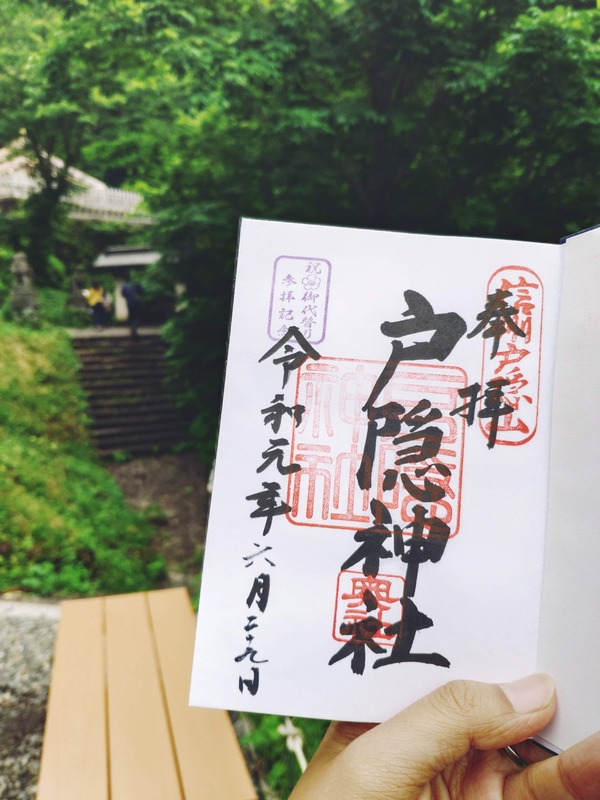 奉拝
信州戸隠山
戸隠神社
戸隠
神社
祝 御代替り
参拝記念
令和元年六月二十九日